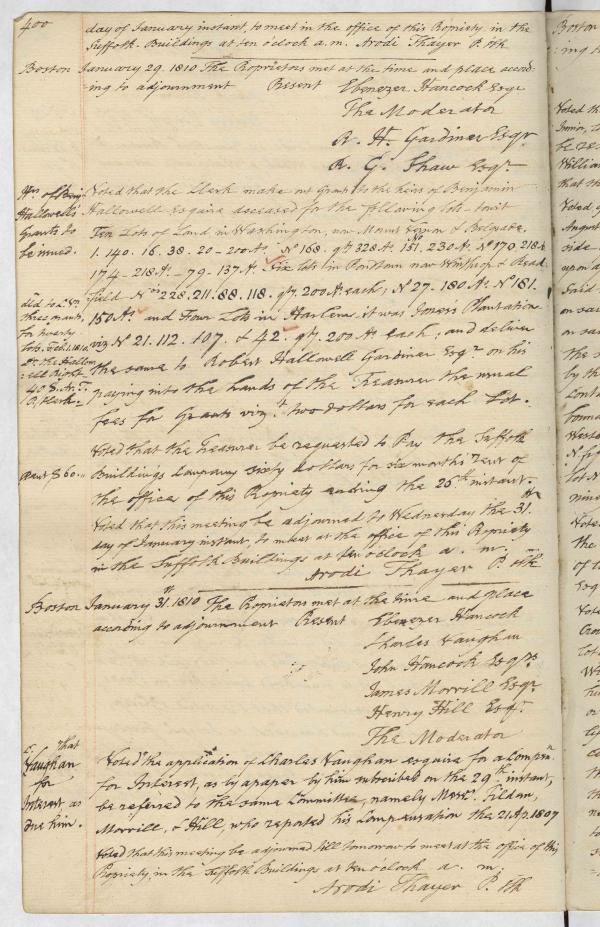 400
day of January instant, to meet in the office of this Propriety in the
Suffolk Buildings at ten o'clock a.m. Arodi Thayer P. Clk
Boston January 29. 1810 The Proprietors met at the time and place accord-
ing to adjournment Present Ebenezer Hancock Esqr
The Moderator
R. H. Gardiner Esqr
R. G. Shaw Esqr.
Hrs. of Benj.
Hallowell's
Grants to
be issued.
Voted that the Clerk make out grants to the heirs of Benjamin
Hallowell Esquire deceased for the following lots towit
Ten Lots of Land in Washington, now Mount Vernon & Belgrade.
1. 140. 16. 38. 20 - 200 As. No 168. qty 328 A. 151. 230 A. No 170 218 A.
174 - 218 A. - 79. 137 A. Six lots in Pondtown now Winthrop & Read-
field Nos 228. 211. 88. 118. qty. 200 A. each; No 27. 180 A. No 181.
150 As. and Four Lots in Harlem it was Jones's Plantation
viz N 21. 112. 107. & 42. qty. 200 As each; and deliver
the same to Robert Hallowell Gardiner Esqr on his
paying into the hands of the Treasurer the usual
fees for Grants vizt. two dollars for each Lot.
three grants,
for twenty
lots. Feb. 1. 1810
P. Clerk.
Voted that the Treasurer be requested to Pay the Suffolk
Rent $60.
Buildings Company sixty dollars for six months rent of
the office of this Propriety ending the 25th instant.
Voted that this meeting be adjourned to Wednesday the 31st
day of January instant, to meet at the office of this Propriety
in the Suffolk Buildings at ten o'clock a. m.
Arodi Thayer P. Clk
Boston January 31st 1810 The Proprietors met at the time and place
according to adjournment Present Ebenezer Hancock
Charles Vaughan
John Hancock Esqrs
James Morrill Esqr
Henry Hill Esqr.
The Moderator
C. that
Vaughan
for
Interest as
due him.
Voted the application of Charles Vaughan esquire for a Compn.
for Interest, as by a paper by him subscribed on the 29th instant,
be referred to the same Committee, namely Messrs. Tilden,
Morrill, & Hill, who reported his Compensation the 21 Ap. 1807
Voted that this meeting be adjourned till tomorrow to meet at the office of this
Propriety, in the Suffolk Buildings at ten o'clock a. m.
Arodi Thayer P. Clk